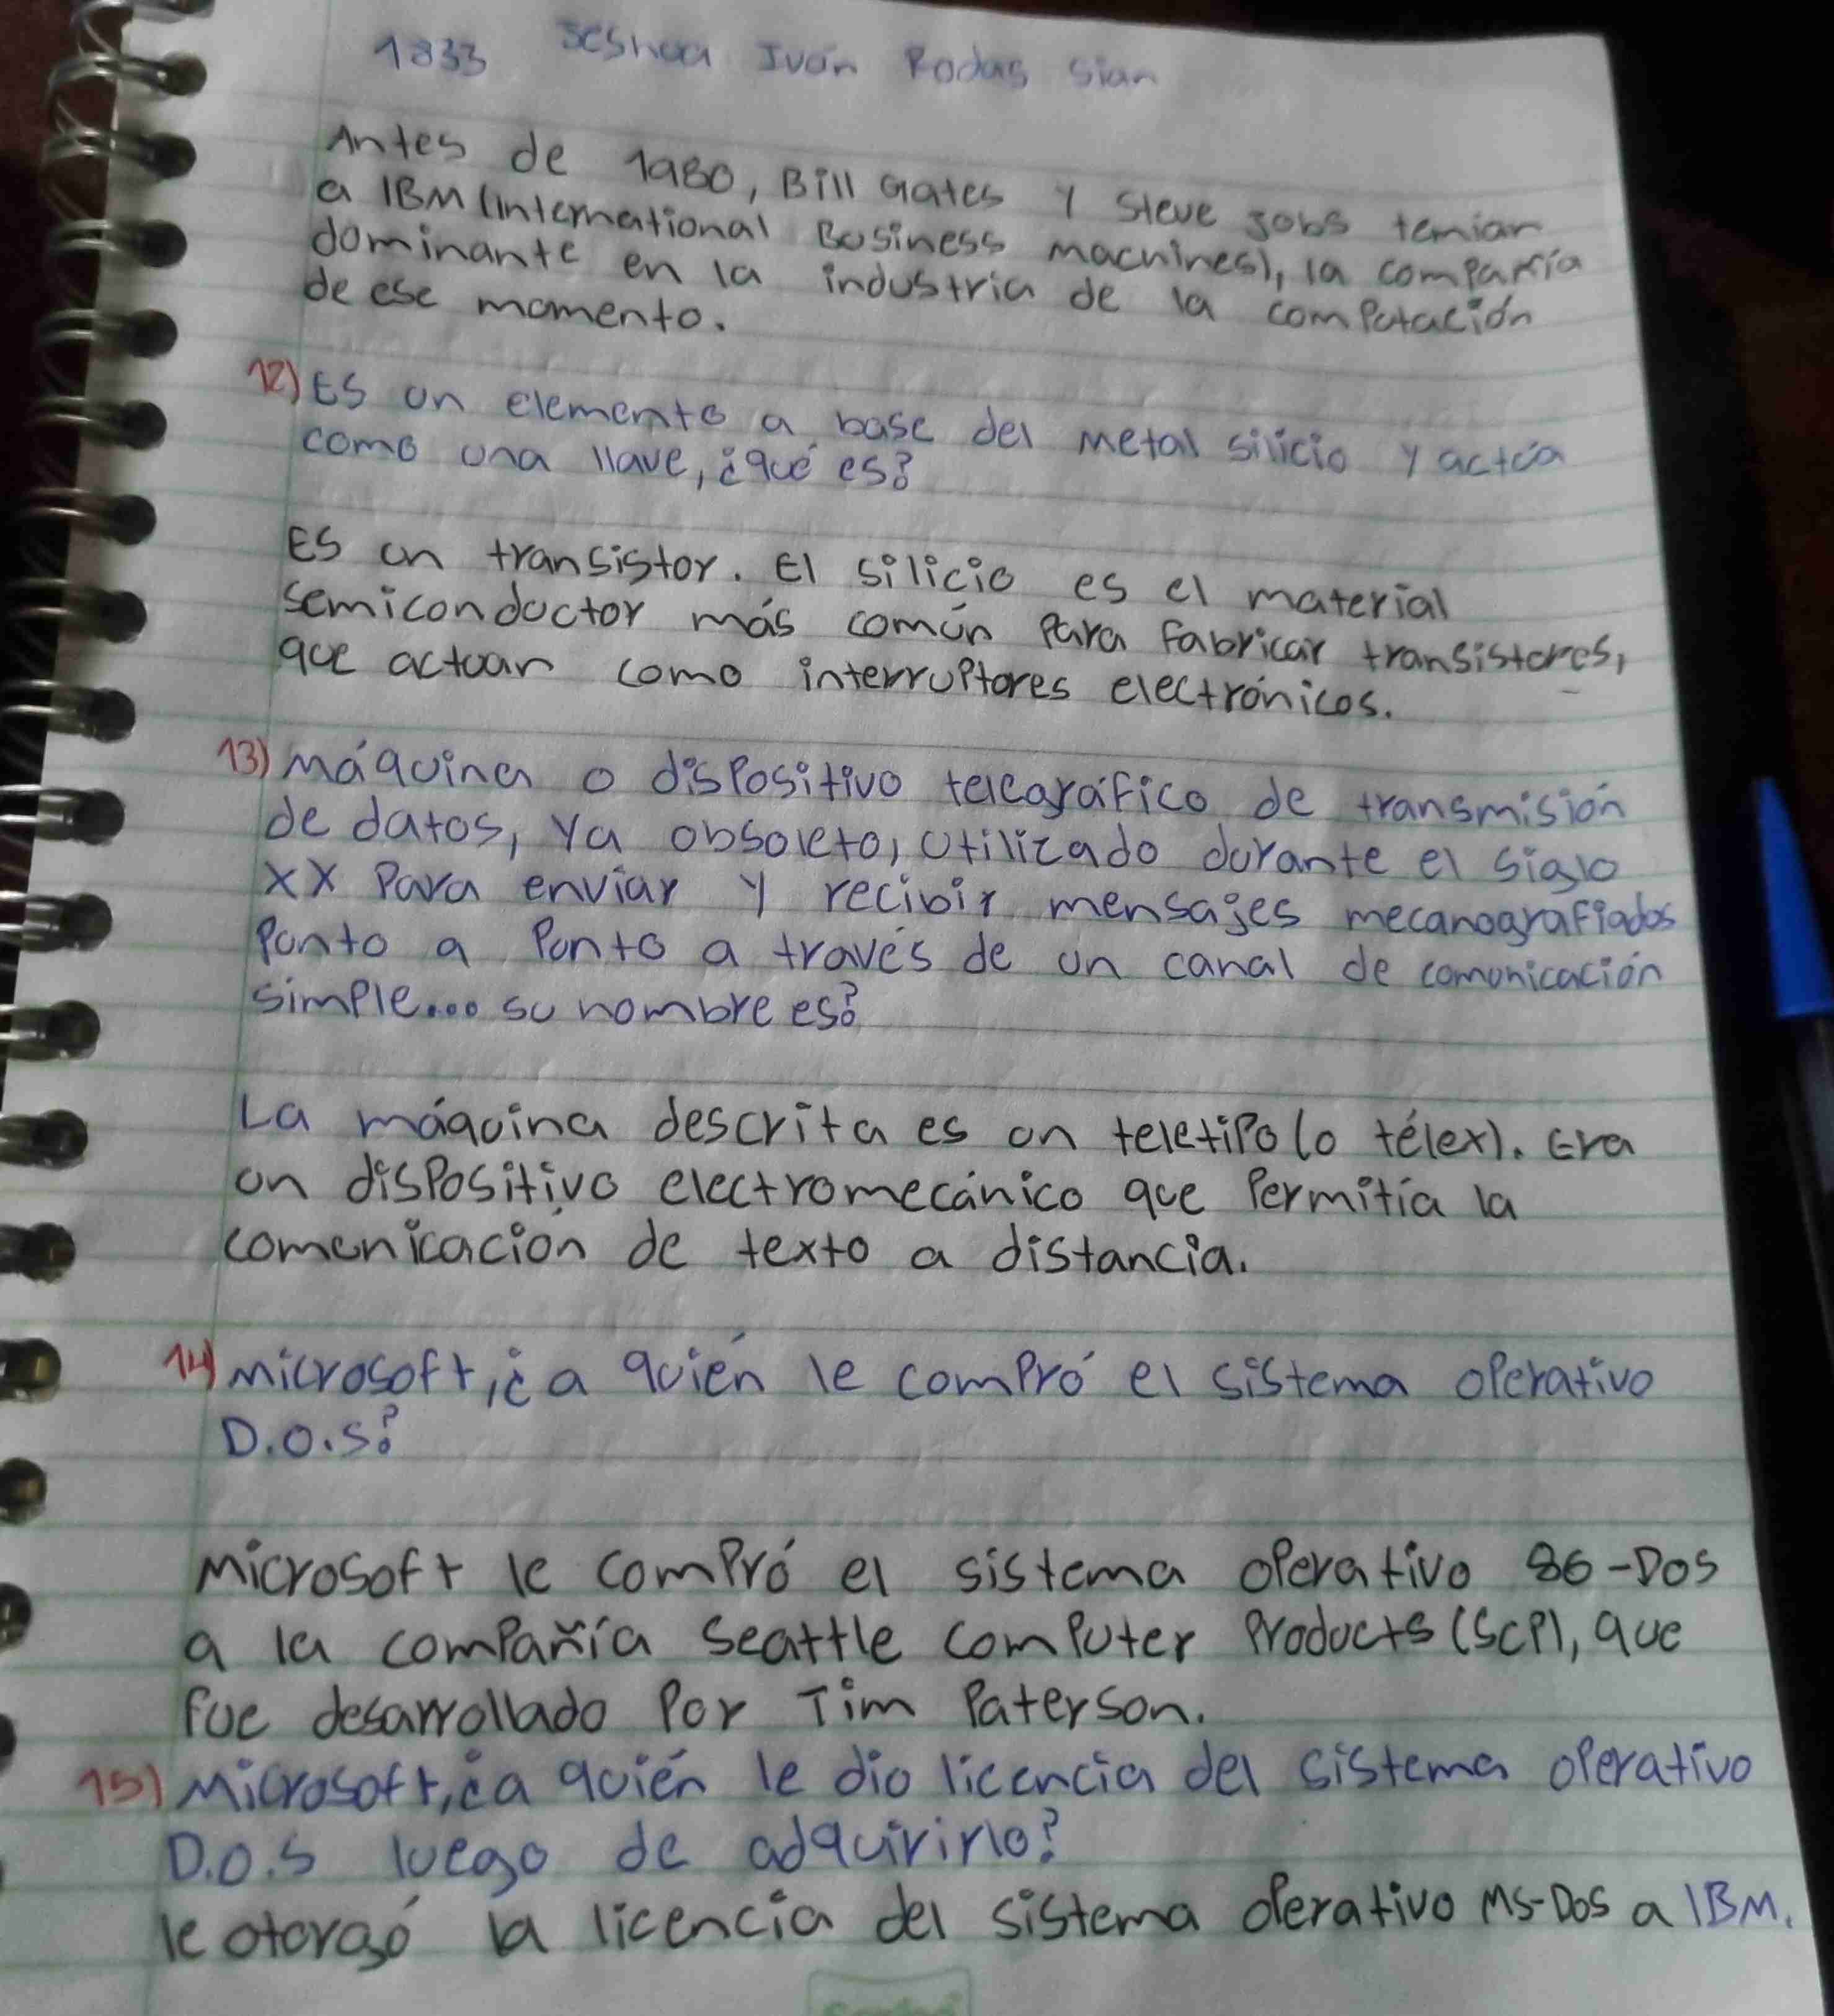 1833 Jeshua Iván Rodas Sian
Antes de 1980, Bill Gates y Steve Jobs temian
a IBM (International Business machines), la compañía
dominante en la industria de la computación
de ese momento.
12) Es un elemento a base del metal silicio y actúa
como una llave, ¿qué es?
Es un transistor. El silicio es el material
semiconductor más común para fabricar transistores,
que actuan como interruptores electrónicos.
13) máquina o dispositivo telegráfico de transmisión
de datos, ya obsoleto, utilizado durante el siglo
XX para enviar y recibir mensajes mecanografiados
punto a punto a través de un canal de comunicación
simple... su nombre es?
La máquina descrita es un teletipo (o télex). Era
un dispositivo electromecánico que permitía la
comunicación de texto a distancia.
14) microsoft, ¿a quién le compró el sistema operativo
D.O.S?
Microsoft le compró el sistema operativo 86-DOS
a la compañía Seattle Computer Products (SCP), que
fue desarrollado por Tim Paterson.
15) Microsoft, ¿a quién le dio licencia del sistema operativo
D.O.S luego de adquirirlo?
le otorgó la licencia del sistema operativo MS-DOS a IBM.